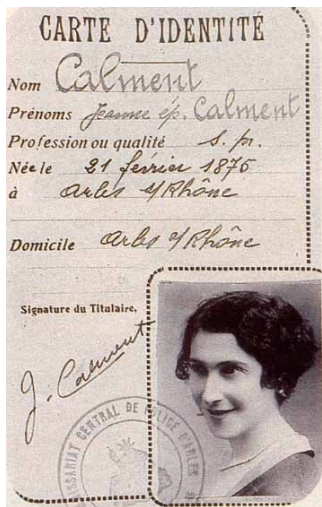 CARTE D'IDENTITÉ
Nom Calment
Prénoms Jeanne ép. Calment
Profession ou qualité s. pr.
Née le 21 février 1875
à Arles s/Rhône
Domicile Arles s/Rhône
Signature du Titulaire,
J. Calment
CENTRAL DE POLICE D'ARLES